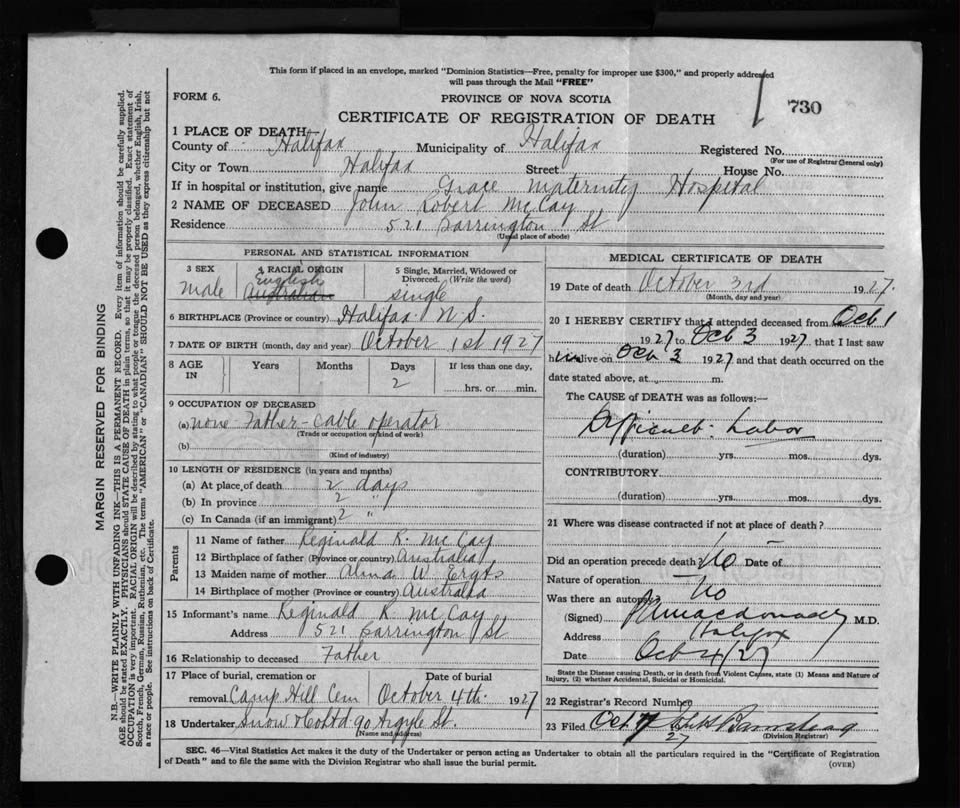 This form if placed in an envelope, marked "Dominion Statistics—Free, penalty for improper use $300," and properly addressed
will pass through the Mail "FREE"
FORM 6.
PROVINCE OF NOVA SCOTIA
730
CERTIFICATE OF REGISTRATION OF DEATH
1 PLACE OF DEATH—
County of Halifax Municipality of Halifax Registered No.
(For use of Registrar General only)
City or Town Halifax Street House No.
If in hospital or institution, give name Grace Maternity Hospital
2 NAME OF DECEASED John Robert McCay
Residence 521 Barrington St
(Usual place of abode)
PERSONAL AND STATISTICAL INFORMATION
3 SEX 4 RACIAL ORIGIN 5 Single, Married, Widowed or Divorced. (Write the word)
male English Australian single
6 BIRTHPLACE (Province or country) Halifax N.S.
7 DATE OF BIRTH (month, day and year) October 1st 1927
8 AGE IN Years Months Days If less than one day,
2 hrs. or min.
9 OCCUPATION OF DECEASED
(a) none Father - cable operator
(Trade or occupation or kind of work)
(b)
(Kind of industry)
10 LENGTH OF RESIDENCE (in years and months)
(a) At place of death 2 days
(b) In province 2 "
(c) In Canada (if an immigrant) 2 "
Parents
11 Name of father Reginald R. McCay
12 Birthplace of father (Province or country) Australia
13 Maiden name of mother Alma W.
14 Birthplace of mother (Province or country) Australia
15 Informant's name Reginald R. McCay
Address 521 Barrington St
16 Relationship to deceased Father
17 Place of burial, cremation or Date of burial
removal Camp Hill Cem October 4th. 1927
18 Undertaker Snow & Co Ltd 90 Argyle St.
(Name and address)
MEDICAL CERTIFICATE OF DEATH
19 Date of death October 3rd 1927.
(Month, day and year)
20 I HEREBY CERTIFY that I attended deceased from Oct 1
1927 to Oct 3 1927, that I last saw
him alive on Oct 3 1927 and that death occurred on the
date stated above, at m.
The CAUSE of DEATH was as follows:—
Difficult Labor
(duration) yrs. mos. dys.
CONTRIBUTORY
(duration) yrs. mos. dys.
21 Where was disease contracted if not at place of death?
Did an operation precede death No Date of
Nature of operation
Was there an autopsy No
(Signed) M.D.
Address Halifax
Date Oct 4/27
State the Disease causing Death, or in death from Violent Causes, state (1) Means and Nature of
Injury, (2) whether Accidental, Suicidal or Homicidal.
22 Registrar's Record Number
23 Filed Oct 7 27
(Division Registrar)
SEC. 46—Vital Statistics Act makes it the duty of the Undertaker or person acting as Undertaker to obtain all the particulars required in the "Certificate of Registration
of Death" and to file the same with the Division Registrar who shall issue the burial permit.
(OVER)
MARGIN RESERVED FOR BINDING
N.B.—WRITE PLAINLY WITH UNFADING INK—THIS IS A PERMANENT RECORD. Every item of information should be carefully supplied.
AGE should be stated EXACTLY. PHYSICIANS should STATE CAUSE OF DEATH in plain terms, so that it may be properly classified. Exact statement of
OCCUPATION is very important. RACIAL ORIGIN will be described by stating to what people or tongue the deceased person belonged, whether English, Irish,
Scotch, French, German, Russian, Ruthenian, etc. The terms "AMERICAN" or "CANADIAN" SHOULD NOT BE USED as they express citizenship but not
a race or people. See instructions on back of Certificate.